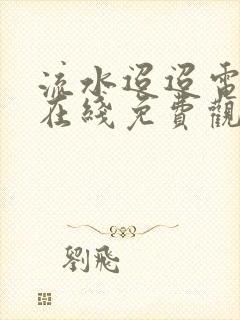 流水迢迢電
在綫免費觀
劉飛